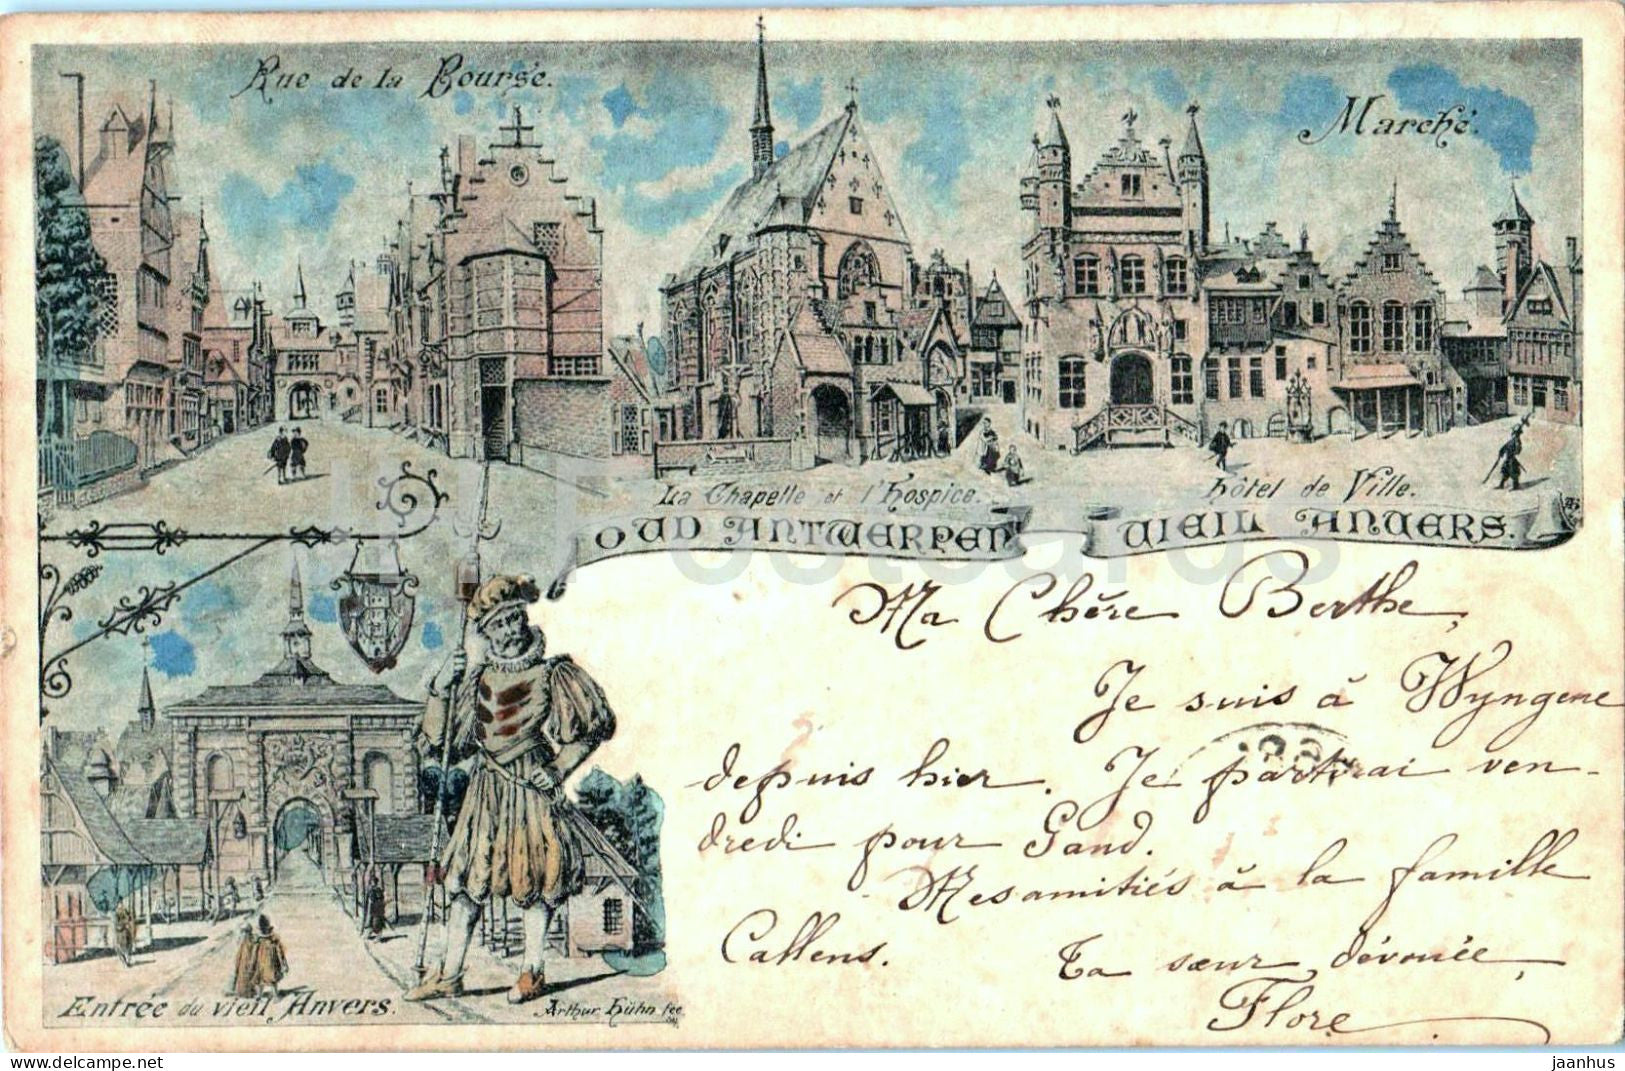 Rue de la Bourse.
Marché.
La Chapelle et l'Hospice.
Hôtel de Ville.
OUD ANTWERPEN
VIEIL ANVERS.
Ma Chère Berthe,
Je suis à Wyngene
depuis hier. Je partirai ven-
dredi pour Gand.
Mes amitiés à la famille
Callens.
Ta sœur dévouée,
Flore
Entrée du vieil Anvers.
Arthur Hühn fec
Postcards
WWW.DELCAMPE.NET
jaanhus